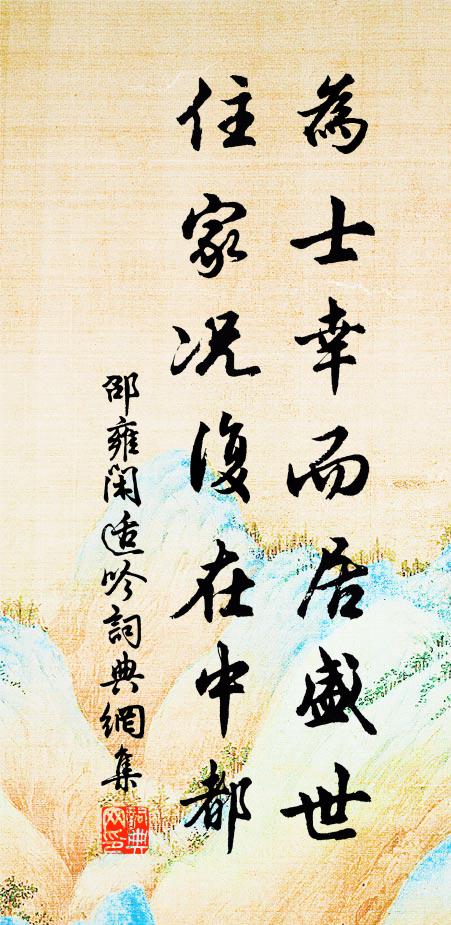 為士幸而居盛世
住家況復在中都
邵雍閑适吟詞典網集
詞典網印